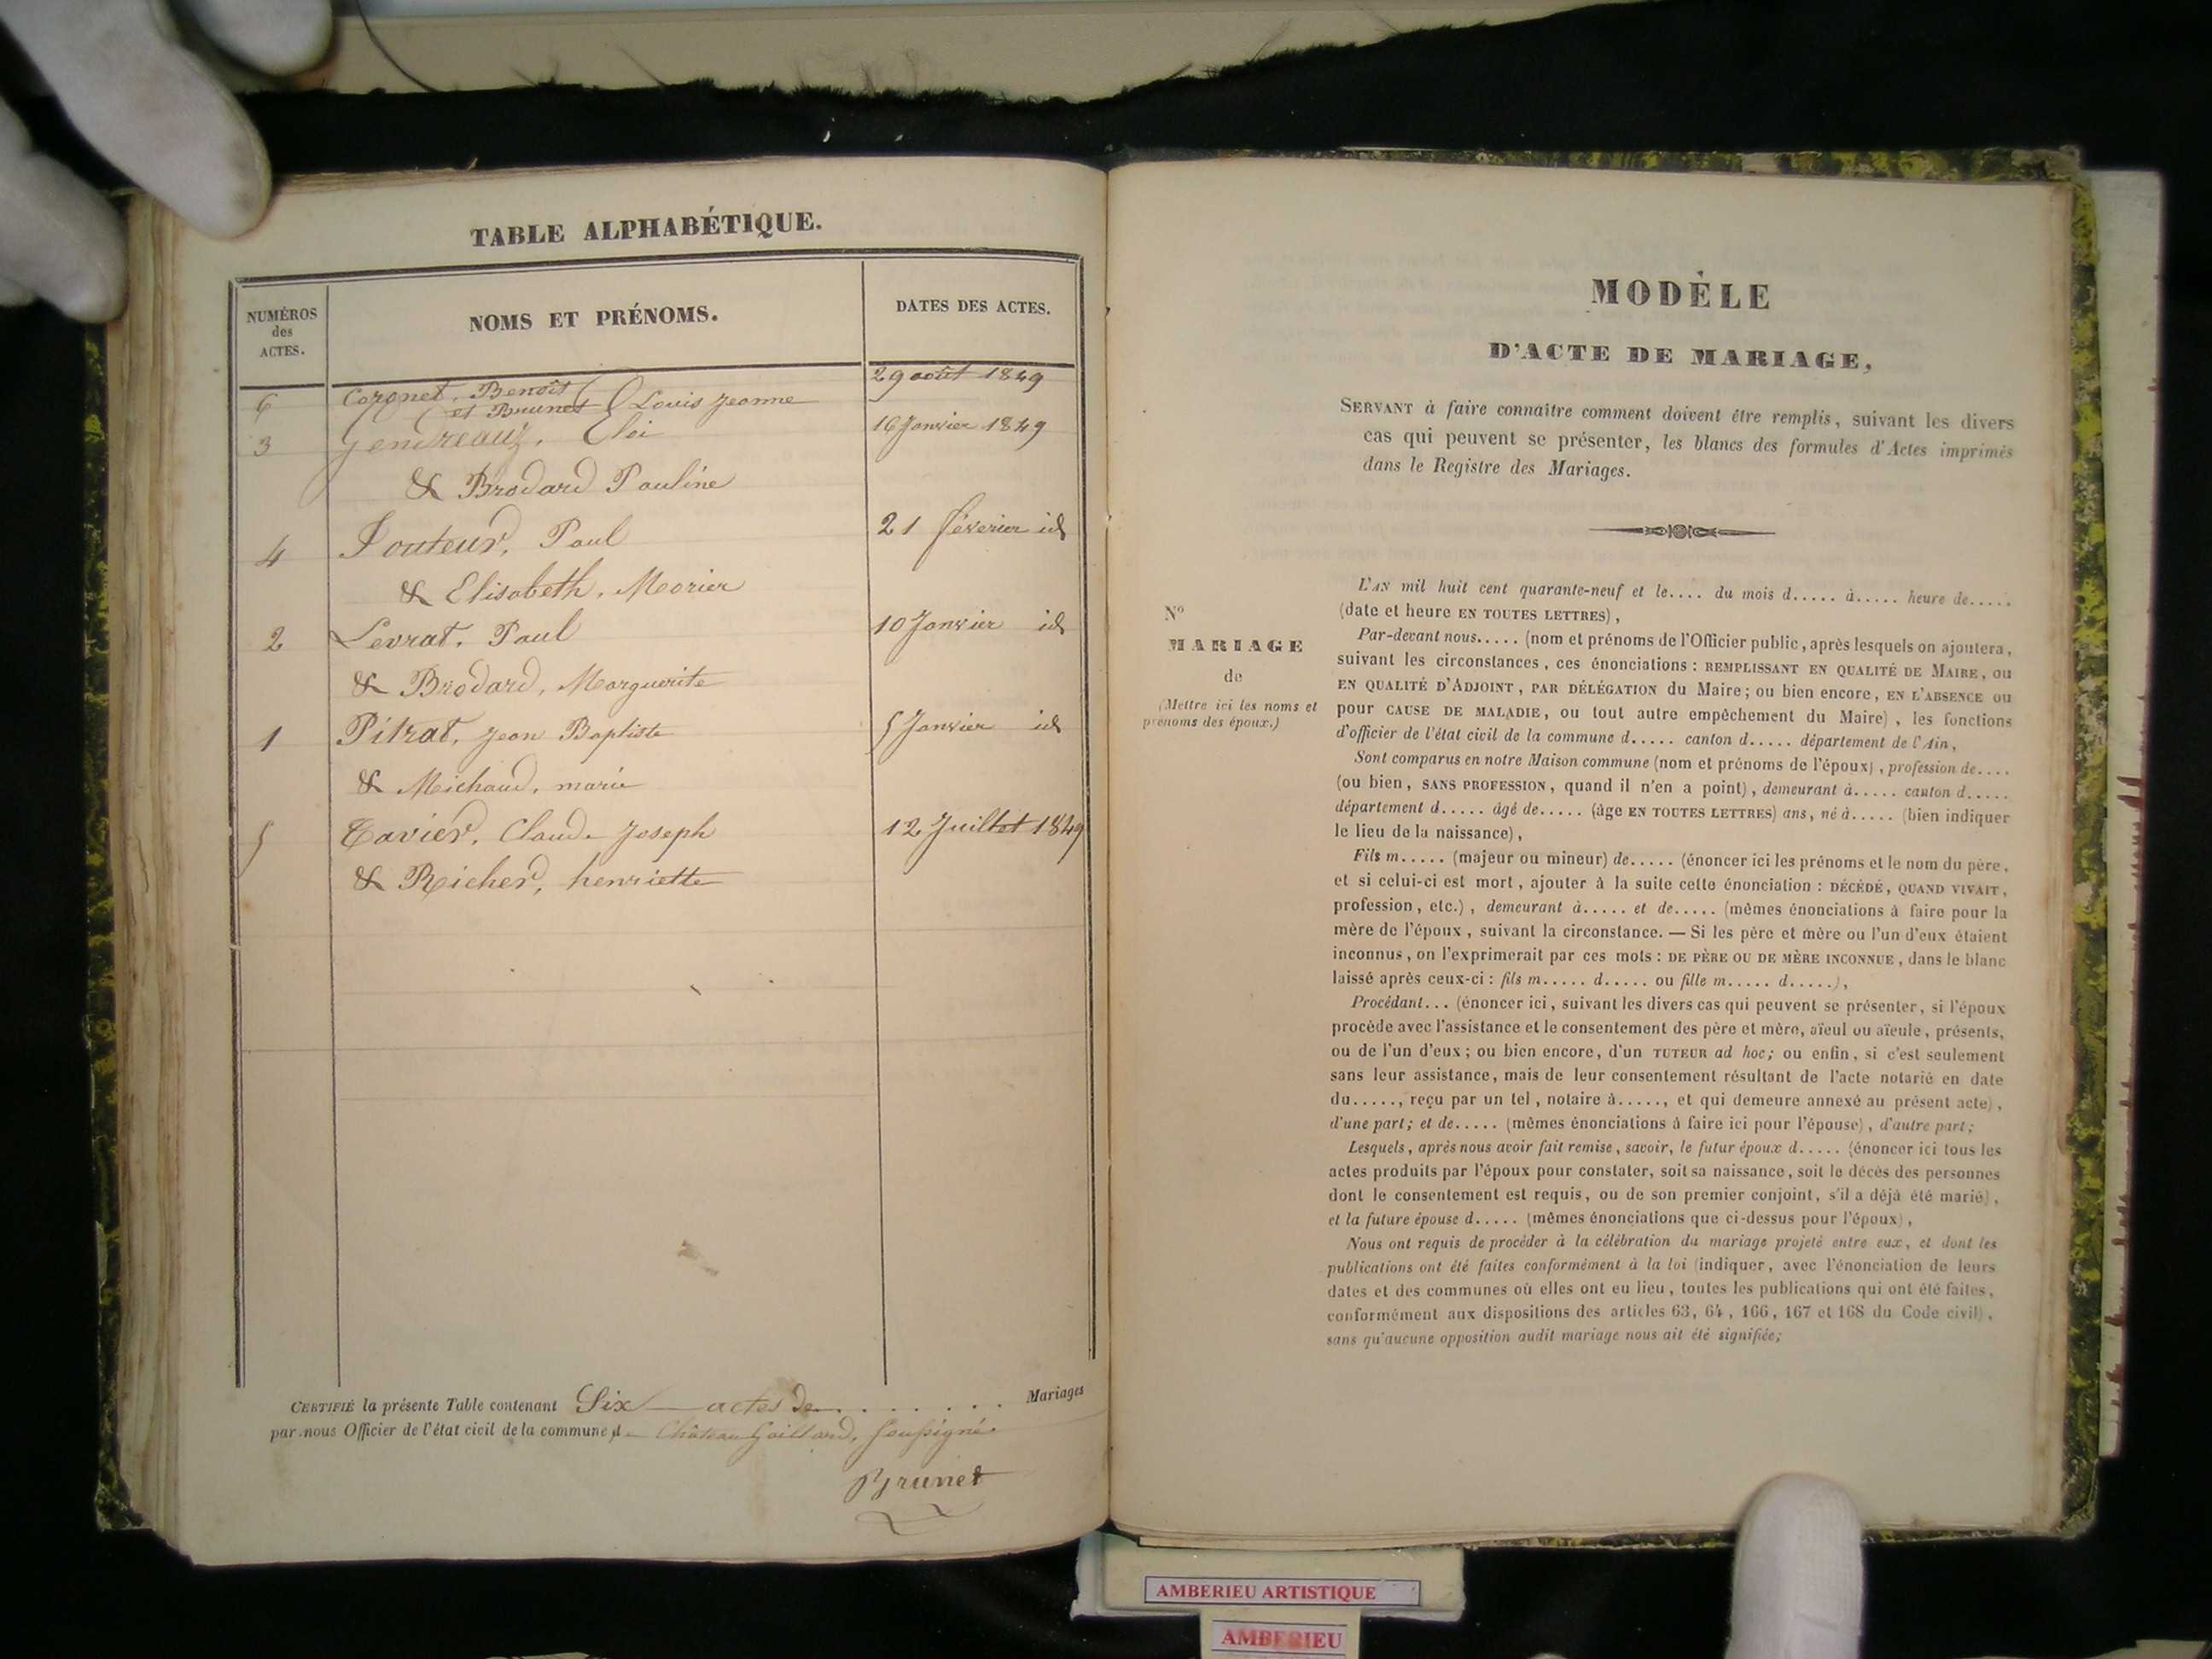 TABLE ALPHABÉTIQUE.
NUMÉROS
des
ACTES.
NOMS ET PRÉNOMS.
DATES DES ACTES.
6 Coronet, Benoit 29 août 1849
et Brunet Louis Jeanne
3 Gendreauz, Eloi 16 Janvier 1849
& Brodard Pauline
4 Jouteur, Paul 21 féverier id
& Elisabeth, Morier
2 Levrat, Paul 10 Janvier id
& Brodard, Marguerite
1 Pitrat, Jean Baptiste 5 Janvier id
& Michaud, marie
5 Tavier, Claude Joseph 12 Juillet 1849
& Richer, henriette
CERTIFIÉ la présente Table contenant Six actes de . . . . . . . . Mariages
par nous Officier de l'état civil de la commune de Château Gaillard, soussigné
Brunet
MODÈLE
D'ACTE DE MARIAGE,
SERVANT à faire connaître comment doivent être remplis, suivant les divers
cas qui peuvent se présenter, les blancs des formules d'Actes imprimés
dans le Registre des Mariages.
N°
MARIAGE
de
(Mettre ici les noms et
prénoms des époux.)
L'AN mil huit cent quarante-neuf et le.... du mois d..... à..... heure de.....
(date et heure EN TOUTES LETTRES),
Par-devant nous..... (nom et prénoms de l'Officier public, après lesquels on ajoutera,
suivant les circonstances, ces énonciations : REMPLISSANT EN QUALITÉ DE MAIRE, OU
EN QUALITÉ D'ADJOINT, PAR DÉLÉGATION du Maire; ou bien encore, EN L'ABSENCE OU
pour CAUSE DE MALADIE, ou tout autre empêchement du Maire), les fonctions
d'officier de l'état civil de la commune d..... canton d..... département de l'Ain,
Sont comparus en notre Maison commune (nom et prénoms de l'époux), profession de....
(ou bien, SANS PROFESSION, quand il n'en a point), demeurant à..... canton d.....
département d..... âgé de..... (âge EN TOUTES LETTRES) ans, né à..... (bien indiquer
le lieu de la naissance),
Fils m..... (majeur ou mineur) de..... (énoncer ici les prénoms et le nom du père,
et si celui-ci est mort, ajouter à la suite cette énonciation : DÉCÉDÉ, QUAND VIVAIT,
profession, etc.), demeurant à..... et de..... (mêmes énonciations à faire pour la
mère de l'époux, suivant la circonstance. — Si les père et mère ou l'un d'eux étaient
inconnus, on l'exprimerait par ces mots : DE PÈRE OU DE MÈRE INCONNUE, dans le blanc
laissé après ceux-ci : fils m..... d..... ou fille m..... d.....),
Procédant... (énoncer ici, suivant les divers cas qui peuvent se présenter, si l'époux
procède avec l'assistance et le consentement des père et mère, aïeul ou aïeule, présents,
ou de l'un d'eux; ou bien encore, d'un TUTEUR ad hoc; ou enfin, si c'est seulement
sans leur assistance, mais de leur consentement résultant de l'acte notarié en date
du....., reçu par un tel, notaire à....., et qui demeure annexé au présent acte),
d'une part; et de..... (mêmes énonciations à faire ici pour l'épouse), d'autre part;
Lesquels, après nous avoir fait remise, savoir, le futur époux d..... (énoncer ici tous les
actes produits par l'époux pour constater, soit sa naissance, soit le décès des personnes
dont le consentement est requis, ou de son premier conjoint, s'il a déjà été marié),
et la future épouse d..... (mêmes énonciations que ci-dessus pour l'époux),
Nous ont requis de procéder à la célébration du mariage projeté entre eux, et dont les
publications ont été faites conformément à la loi (indiquer, avec l'énonciation de leurs
dates et des communes où elles ont eu lieu, toutes les publications qui ont été faites,
conformément aux dispositions des articles 63, 64, 166, 167 et 168 du Code civil),
sans qu'aucune opposition audit mariage nous ait été signifiée;
AMBERIEU ARTISTIQUE
AMBERIEU